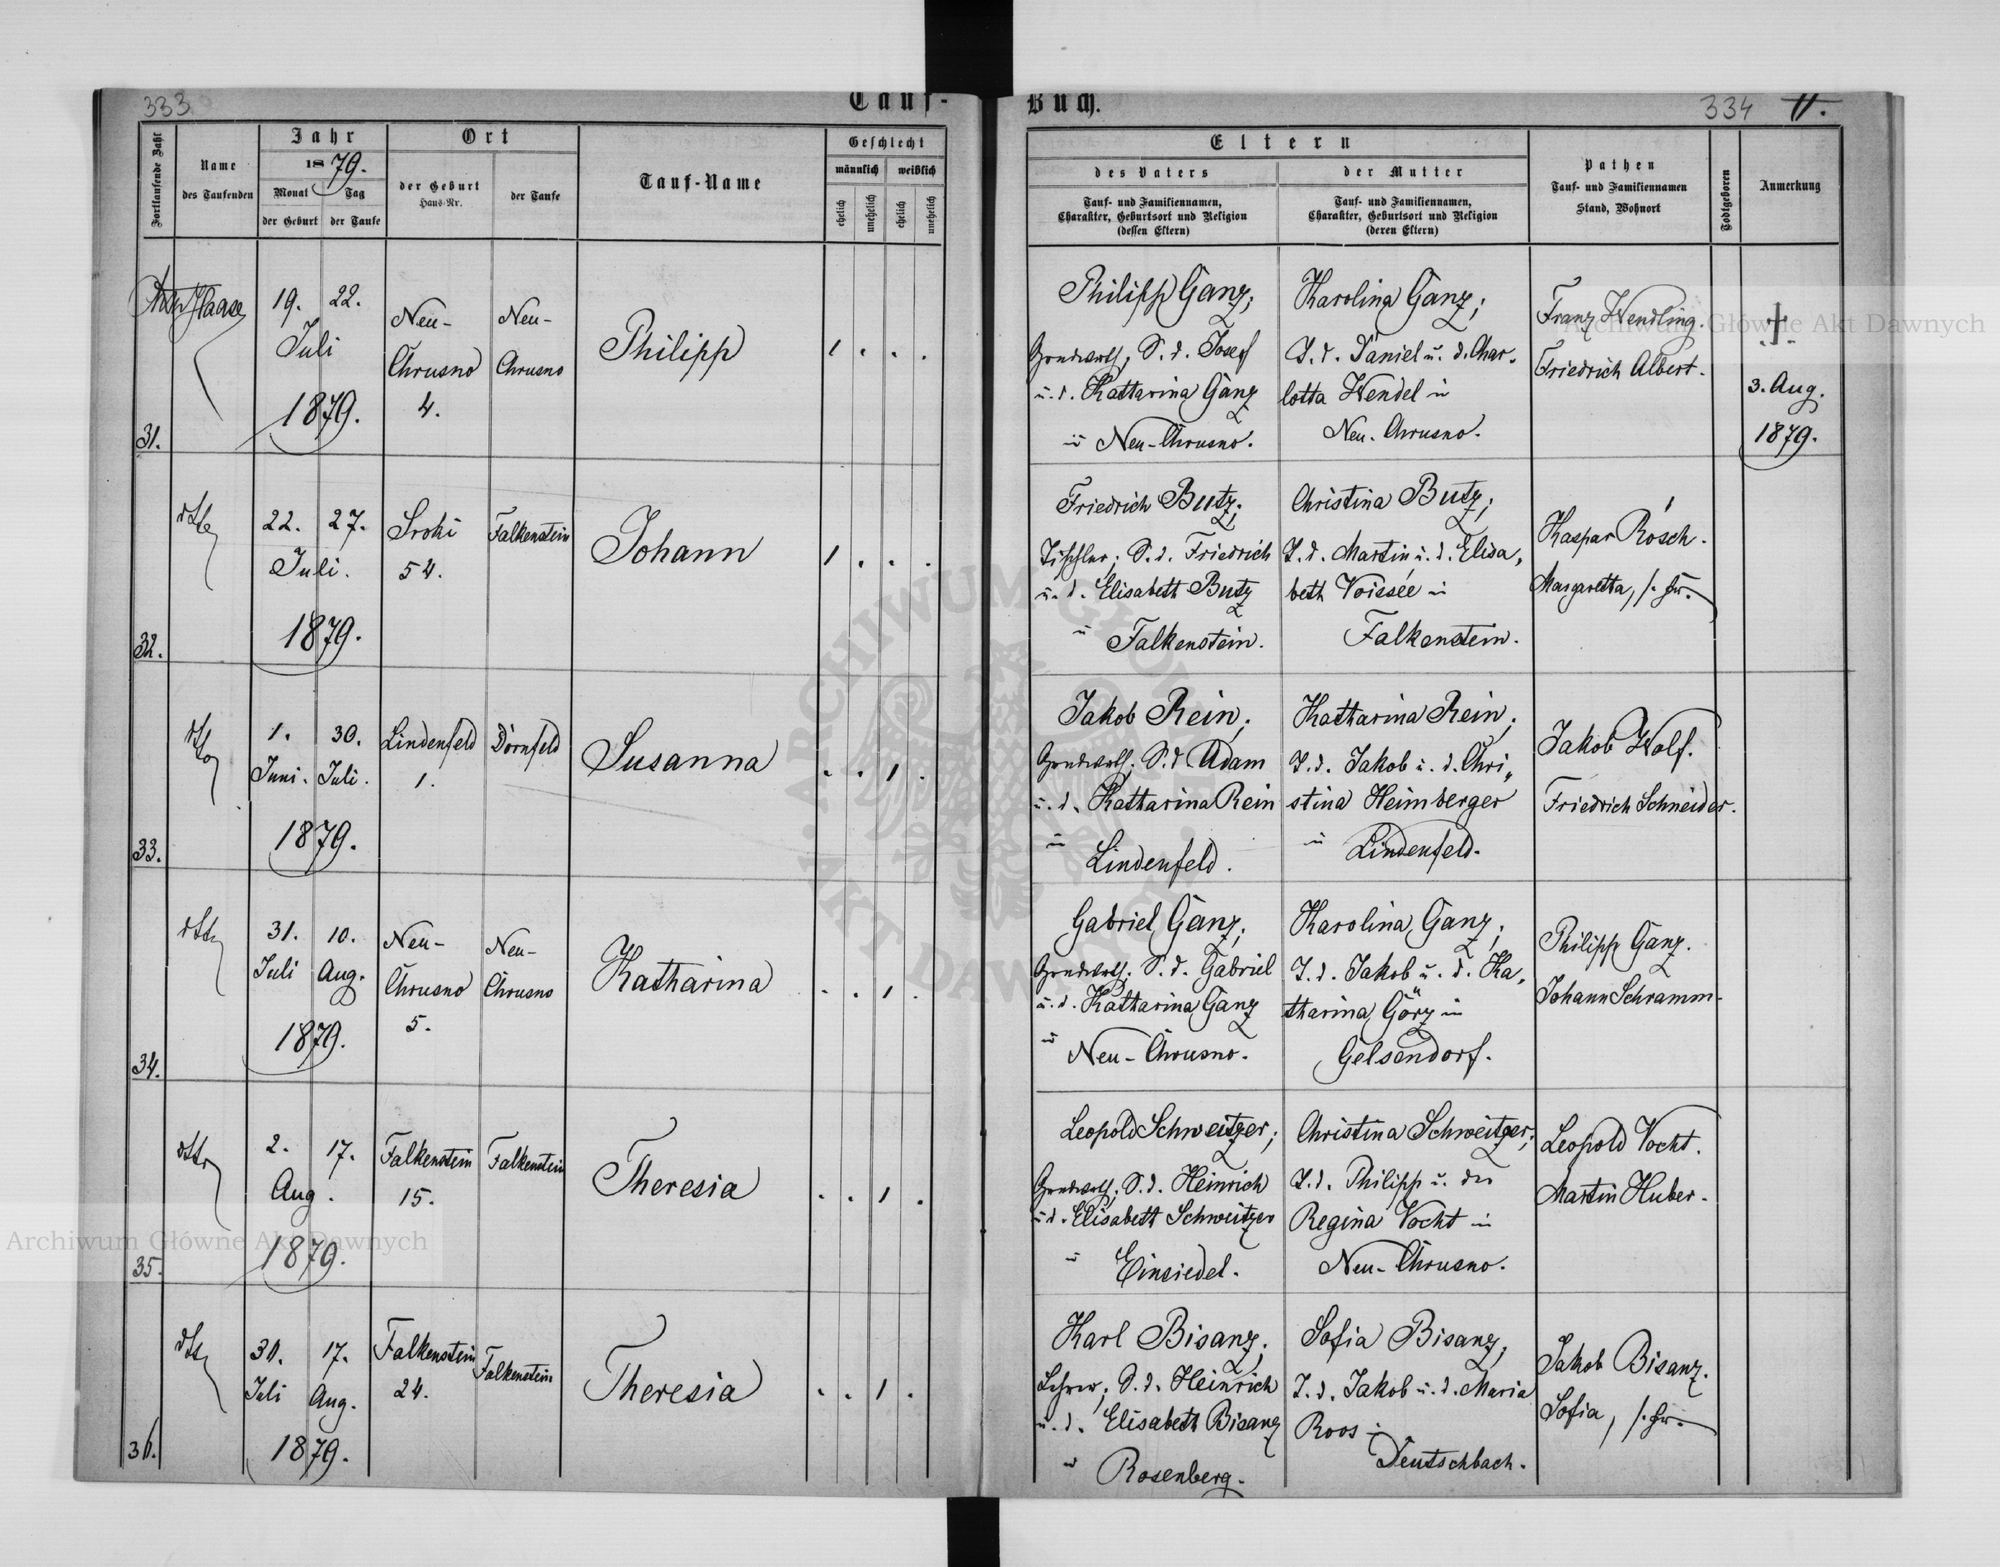 333
Tauf-
Fortlaufende Zahl
Name
des Taufenden
Jahr
1879.
Monat
Tag
der Geburt
der Taufe
Ort
der Geburt
Haus-Nr.
der Taufe
Tauf-Name
Geschlecht
männlich
weiblich
ehelich
unehelich
ehelich
unehelich
31.
Haase
19. 22.
Juli
1879.
Neu-
Chrusno
4.
Neu-
Chrusno
Philipp
1 . . .
32.
dtto
22. 27.
Juli.
1879.
Sroki
54.
Falkenstein
Johann
1 . . .
33.
dtto
1. 30.
Juni. Juli.
1879.
Lindenfeld
1.
Dornfeld
Susanna
. . 1 .
34.
dtto
31. 10.
Juli Aug.
1879.
Neu-
Chrusno
5.
Neu-
Chrusno
Katharina
. . 1 .
35.
dtto
2. 17.
Aug.
1879.
Falkenstein
15.
Falkenstein
Theresia
. . 1 .
36.
dtto
17.
Juli Aug.
1879.
Falkenstein
24.
Falkenstein
Theresia
. . 1 .
Buch.
334
Eltern
des Vaters
Tauf- und Familiennamen,
Charakter, Geburtsort und Religion
(dessen Eltern)
der Mutter
Tauf- und Familiennamen,
Charakter, Geburtsort und Religion
(deren Eltern)
Pathen
Tauf- und Familiennamen
Stand, Wohnort
Todtgeboren
Anmerkung
Philipp Ganz;
Grundwirth, S. d. Josef
u. d. Katharina Ganz
in Neu-Chrusno.
Karolina Ganz;
T. d. Daniel u. d. Char-
lotta Wendel in
Neu-Chrusno.
Franz Wendling.
Friedrich Albert.
†
3. Aug.
1879.
Friedrich Butz;
Tischler; S. d. Friedrich
u. d. Elisabeth Butz
in Falkenstein.
Christina Butz;
T. d. Martin u. d. Elisa-
beth Voissée in
Falkenstein.
Kaspar Rosch.
Margaretha, s. Gw.
Jakob Rein;
Grundwirth; S. d. Adam
u. d. Katharina Rein
in
Lindenfeld.
Katharina Rein;
T. d. Jakob u. d. Chri-
stina Heimberger
in Lindenfeld.
Jakob Wolf.
Friedrich Schneider.
Gabriel Ganz;
Grundwirth; S. d. Gabriel
u. d. Katharina Ganz
in
Neu-Chrusno.
Karolina Ganz;
T. d. Jakob u. d. Ka-
tharina Görz in
Gelsendorf.
Philipp Ganz.
Johann Schramm.
Leopold Schweitzer;
Grundwirth; S. d. Heinrich
u. d. Elisabeth Schweitzer
in Einsiedel.
Christina Schweitzer;
T. d. Philipp u. der
Regina Vocht in
Neu-Chrusno.
Leopold Vocht.
Martin Huber.
Karl Bisanz;
Lehrer; S. d. Heinrich
u. d. Elisabeth Bisanz
in Rosenberg.
Sofia Bisanz;
T. d. Jakob u. d. Maria
Roos in
Deutschbach.
Jakob Bisanz.
Sofia, s. Gw.
Archiwum Główne Akt Dawnych
Archiwum Główne Akt Dawnych
ARCHIWUM GŁÓWNE
AKT DAWNYCH